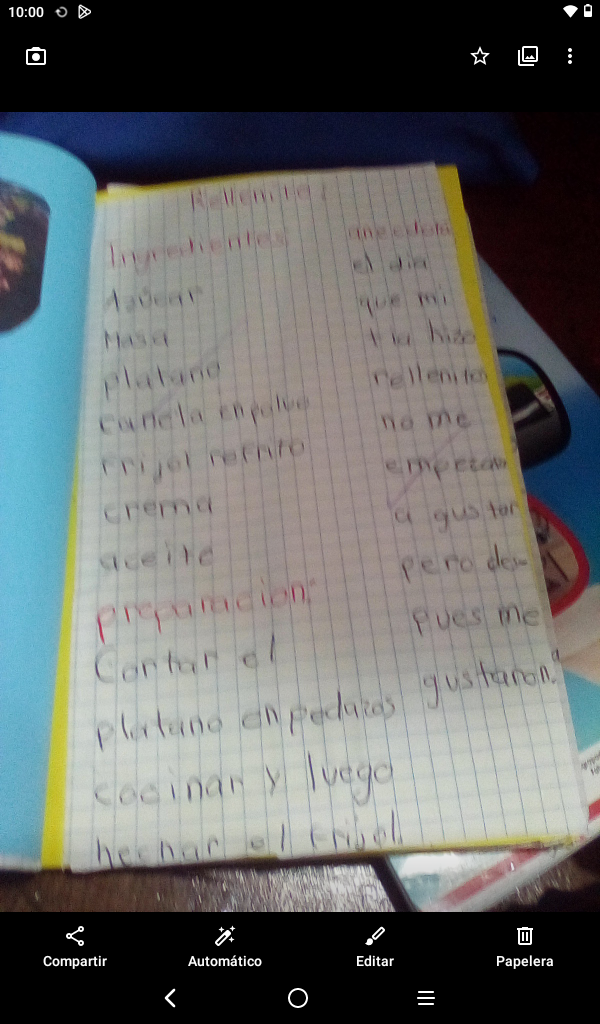 10:00
Rellenito:
Ingredientes
Azúcar
Masa
platano
canela en polvo
frijol refrito
crema
aceite
preparacion:
Cortar el
platano en pedazos
cocinar y luego
hechar el frijol.
anecdota
el dia
que mi
tia hizo
rellenitos
no me
empezar
a gustar
pero des-
pues me
gustaron.
Compartir
Automático
Editar
Papelera